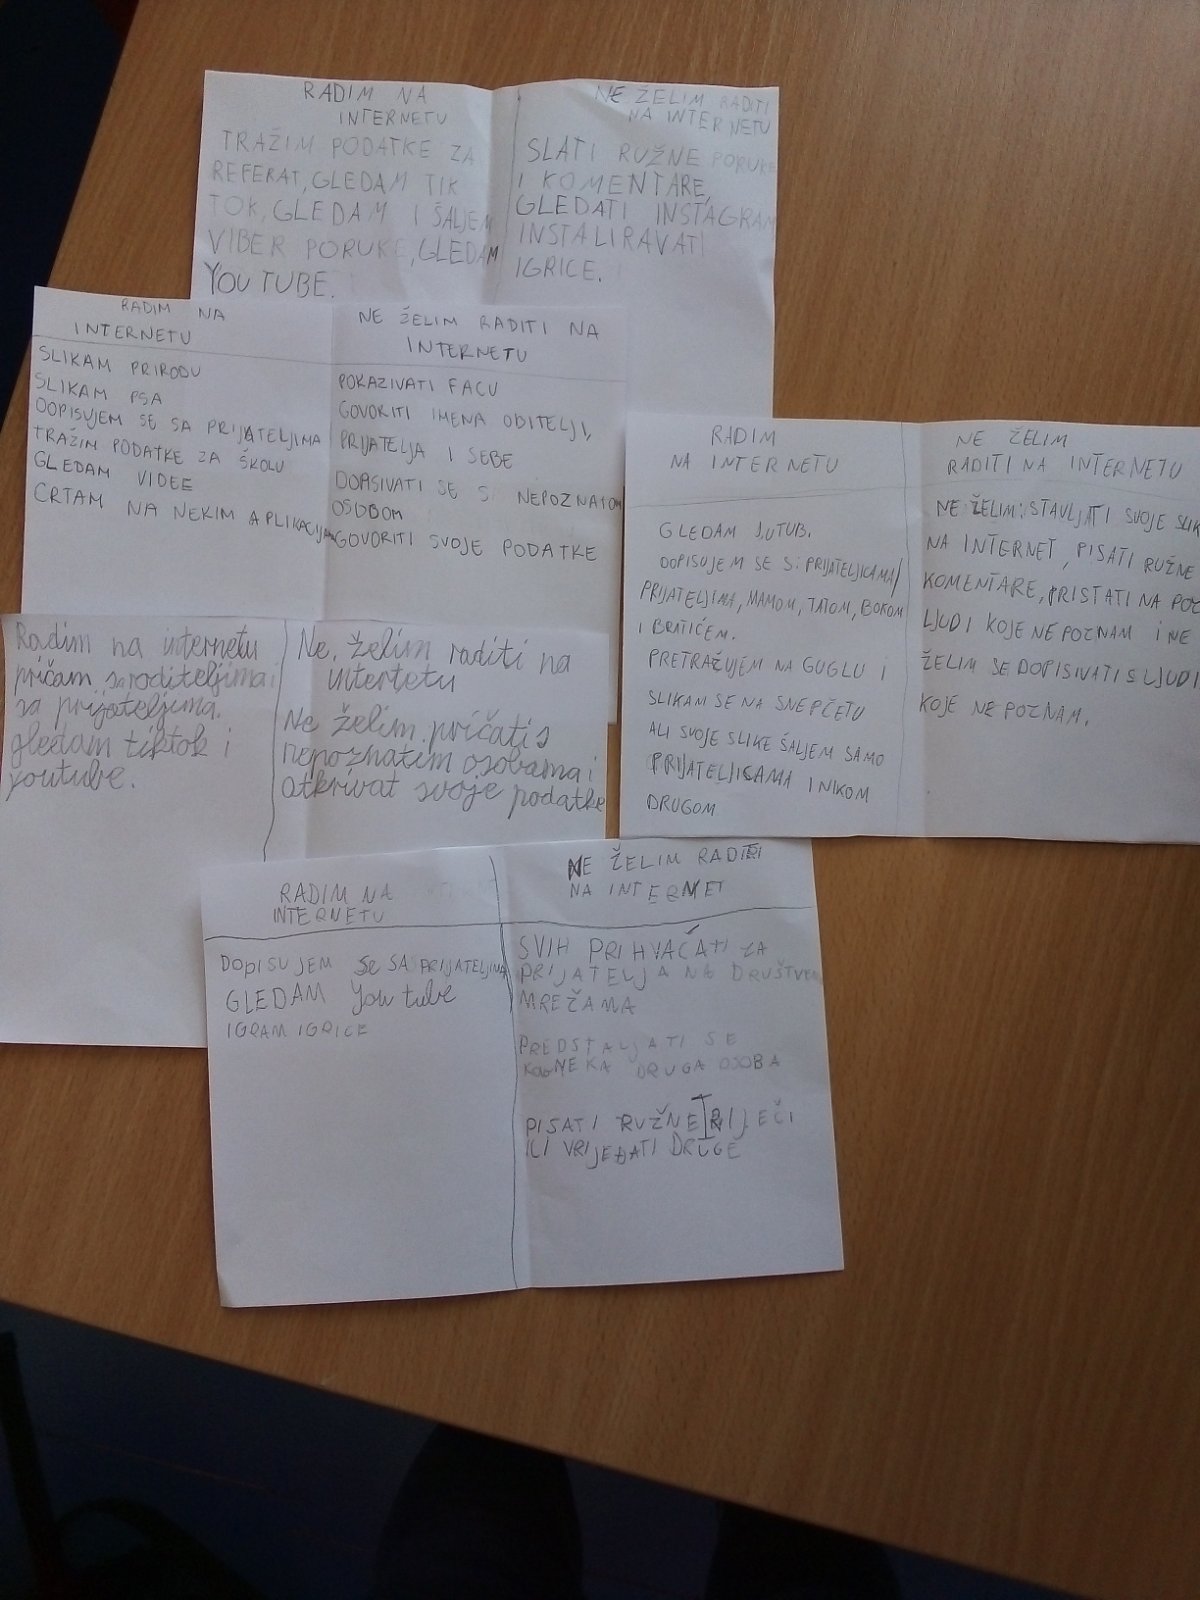 RADIM NA
INTERNETU
TRAŽIM PODATKE ZA
REFERAT, GLEDAM TIK
TOK, GLEDAM I ŠALJEM
VIBER PORUKE, GLEDAM
YOU TUBE.
NE ŽELIM RADITI
NA INTERNETU
SLATI RUŽNE PORUKE
I KOMENTARE,
GLEDATI INSTAGRAM
INSTALIRAVATI
IGRICE.
RADIM NA
INTERNETU
SLIKAM PRIRODU
SLIKAM PSA
DOPISUJEM SE SA PRIJATELJIMA
TRAŽIM PODATKE ZA ŠKOLU
GLEDAM VIDEE
CRTAM NA NEKIM APLIKACIJAMA
NE ŽELIM RADITI NA
INTERNETU
POKAZIVATI FACU
GOVORITI IMENA ODITELJI,
PRIJATELJA I SEBE
DOPISIVATI SE S NEPOZNATOM
OSOBOM
GOVORITI SVOJE PODATKE
RADIM
NA INTERNETU
GLEDAM JUTUB.
DOPISUJEM SE S: PRIJATELJICAMA/
PRIJATELJIMA, MAMOM, TATOM, BOKOM
I BRATIĆEM.
PRETRAŽUJEM NA GUGLU I
SLIKAM SE NA SNEPČETU
ALI SVOJE SLIKE ŠALJEM SAMO
PRIJATELJICAMA I NIKOM
DRUGOM
NE ŽELIM
RADITI NA INTERNETU
NE ŽELIM: STAVLJATI SVOJE SLIK
NA INTERNET, PISATI RUŽNE
KOMENTARE, PRISTATI NA POZ
LJUDI KOJE NE POZNAM I NE
ŽELIM SE DOPISIVATI S LJUDI
KOJE NE POZNAM.
Radim na internetu
pričam sa roditeljima i
sa prijateljima.
gledam tiktok i
youtube.
Ne želim raditi na
intertetu
Ne želim pričati s
nepoznatim osobama i
otkrivat svoje podatke
RADIM NA
INTERNETU
DOPISUJEM SE SA PRIJATELJIMA
GLEDAM You tube
IGRAM IGRICE
NE ŽELIM RADITI
NA INTERNET
SVIH PRIHVAĆATI ZA
PRIJATELJA NA DRUŠTVENIM
MREŽAMA
PREDSTALJATI SE
KAO NEKA DRUGA OSOBA
PISATI RUŽNE RIJEČI
ILI VRIJEĐATI DRUGE